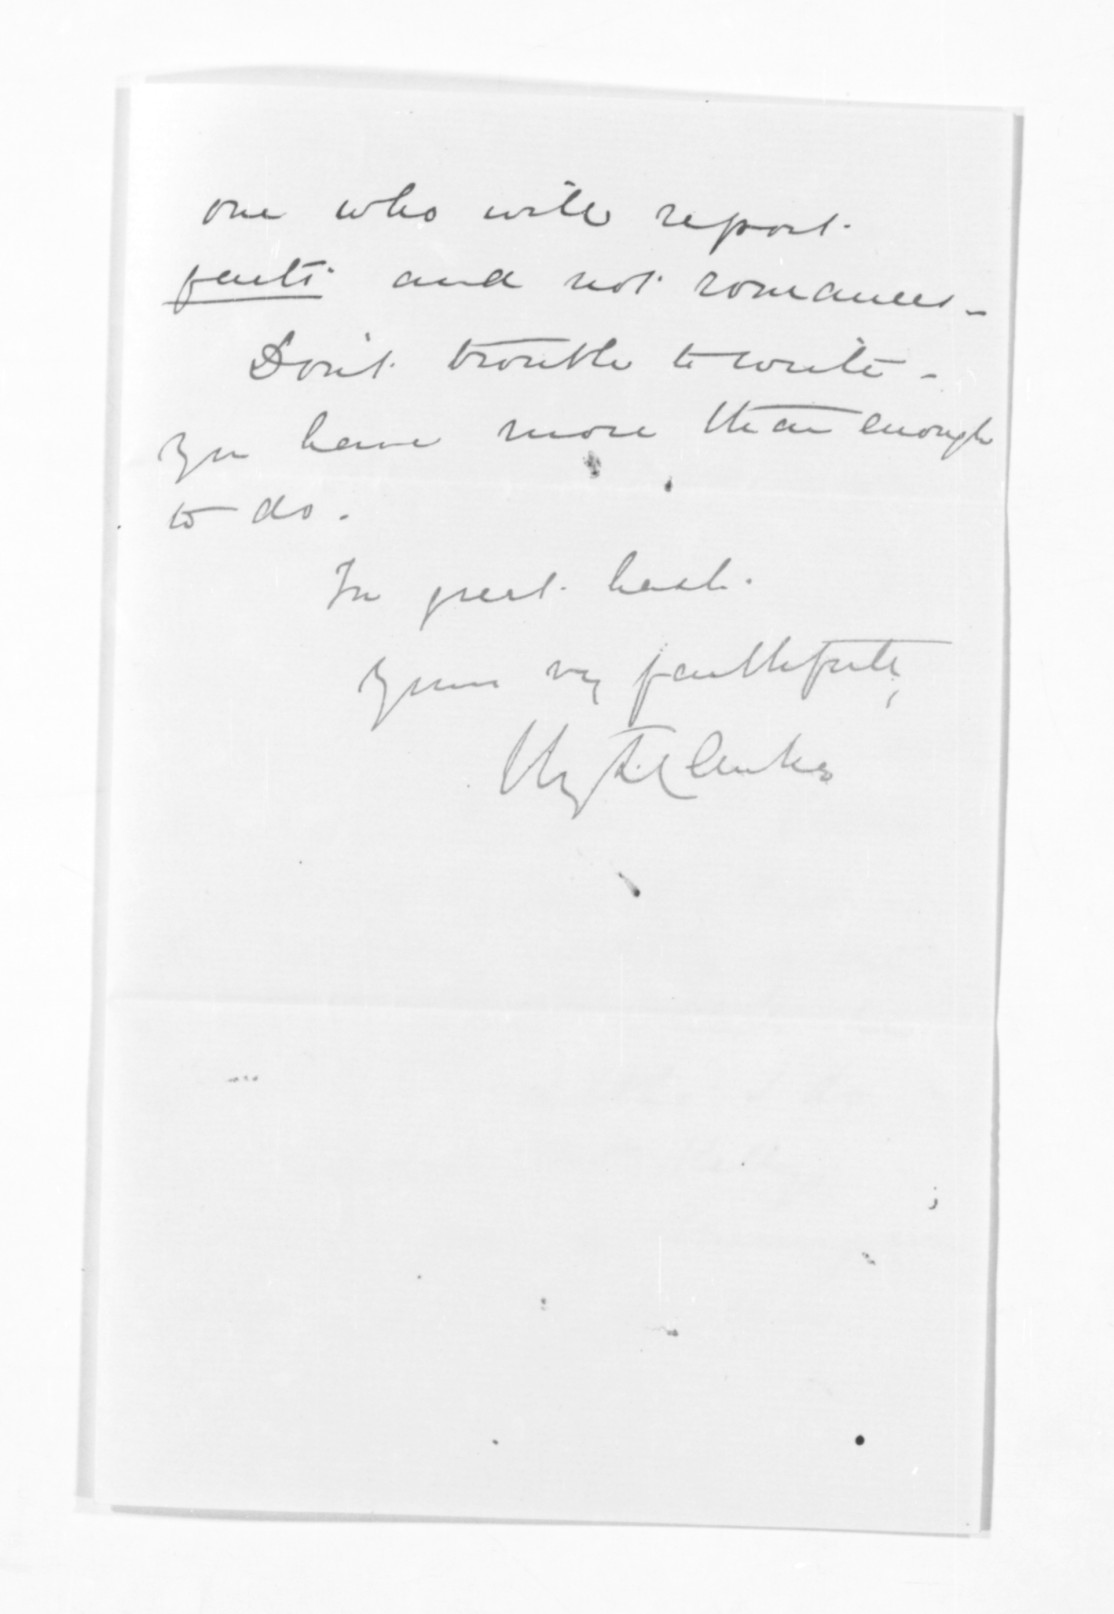 one who will report
facts and not romances -
Don't trouble to write -
You have more than enough
to do.
In great haste.
Yours vy faithfully,